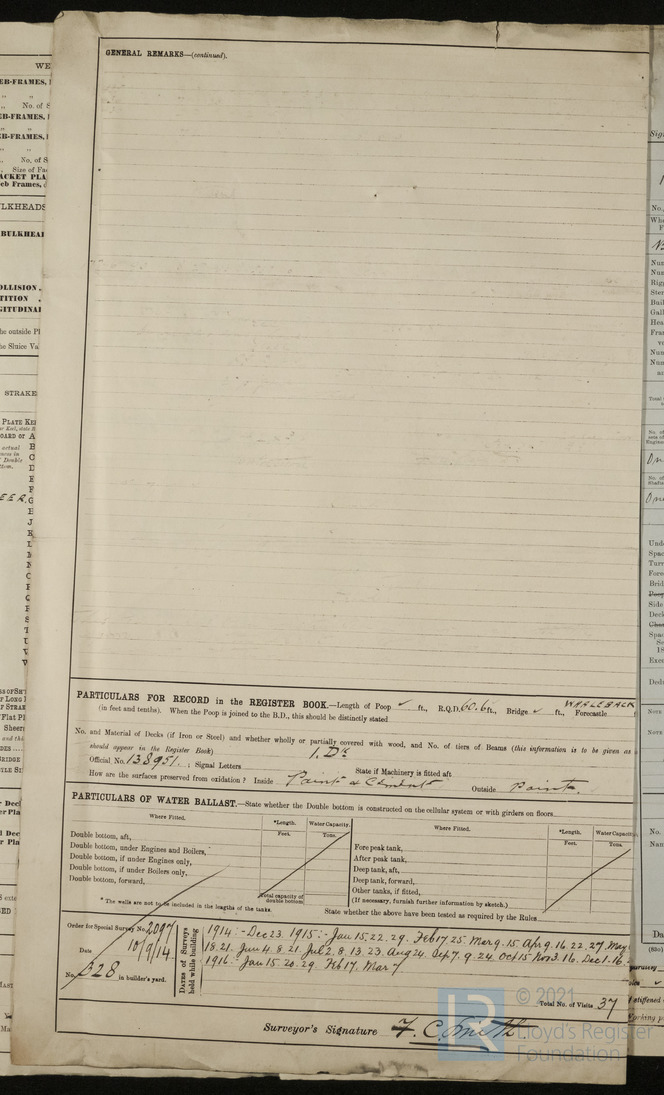 GENERAL REMARKS—(continued).
PARTICULARS FOR RECORD in the REGISTER BOOK.—Length of Poop ✓ ft., R.Q.D. 60.6 ft., Bridge ✓ ft., Forecastle WHALEBACK
(in feet and tenths). When the Poop is joined to the B.D., this should be distinctly stated
No. and Material of Decks (if Iron or Steel) and whether wholly or partially covered with wood, and No. of tiers of Beams (this information is to be given as
should appear in the Register Book) 1. Dk
Official No. 138951. ; Signal Letters State if Machinery is fitted aft
How are the surfaces preserved from oxidation? Inside Paint & Cement Outside Paint.
PARTICULARS OF WATER BALLAST.—State whether the Double bottom is constructed on the cellular system or with girders on floors
Where Fitted. *Length. Water Capacity. Where Fitted. *Length. Water Capacity.
Feet. Tons. Feet. Tons.
Double bottom, aft, Fore peak tank,
Double bottom, under Engines and Boilers, After peak tank,
Double bottom, if under Engines only, Deep tank, aft,
Double bottom, if under Boilers only, Deep tank, forward,
Double bottom, forward, Other tanks, if fitted,
Total capacity of double bottom (If necessary, furnish further information by sketch.)
* The wells are not to be included in the lengths of the tanks. State whether the above have been tested as required by the Rules
Order for Special Survey No. 2097
Date 10/9/14
No. 328 in builder's yard.
Dates of Surveys held while building
1914:- Dec 23. 1915:- Jan 15. 22. 29. Feb 17. 25. Mar 9. 15. Apr 9. 16. 22. 27. May
18. 21. Jun 4. 8. 21. Jul 2. 8. 13. 23. Aug 24. Sep 7. 9. 24. Oct 15. Nov 3. 16. Dec 1. 16.
1916:- Jan 15. 20. 29. Feb 17. Mar 7
Total No. of Visits 37
Surveyor's Signature F. C. Smith
© 2021
Lloyd's Register
Foundation